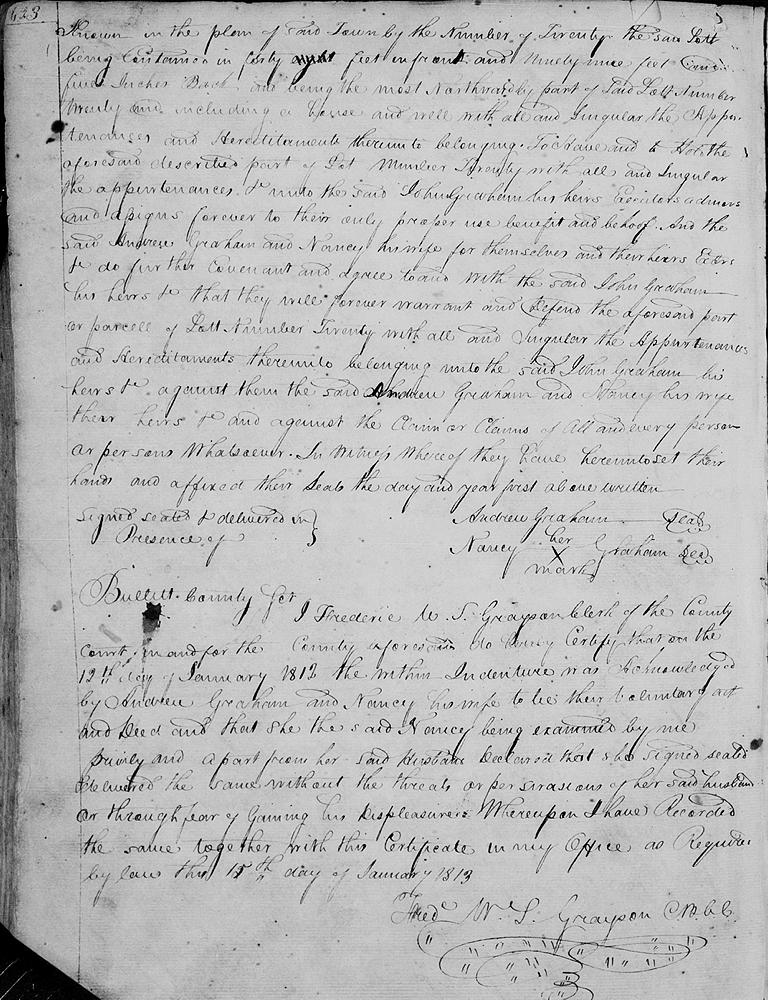 423
Known in the plan of said Town by the Number of Twenty the said Lott
being Contained in forty eight feet in front and Ninety nine feet
five Inches Back and being the most Northwardly part of Said Lott Number
Twenty and including a house and well with all and Singular the Appur-
tenances and Hereditaments thereunto belonging. To Have and to Hold the
aforesaid described part of Lot Number Twenty with all and Singular
the appurtenances &c unto the said John Graham his heirs Exectors admors
and assigns forever to their only proper use benefit and behoof. And the
said Andrew Graham and Nancy his wife for themselves and their heirs Exors
&c do further Covenant and agree to and with the said John Graham
his heirs &c that they will forever warrant and Defend the aforesaid part
or parcell of Lott Number Twenty with all and Singular the Appurtenances
and Hereditaments thereunto belonging unto the said John Graham his
heirs &c against them the said Andrew Graham and Nancy his wife
their heirs &c and against the Claim or Claims of All and every person
or persons Whatsoever. In Witness Whereof they have hereunto set their
hands and affixed their Seals the day and year first above written
Signed sealed & delivered in } Andrew Graham Seal
Presence of } Nancy her X mark Graham Seal
Bullitt County Sct
I Frederic W. S. Grayson Clerk of the County
Court in and for the County aforesaid do hereby Certify that on the
12th day of January 1813 the within Indenture was Acknowledged
by Andrew Graham and Nancy his wife to be their Voluntary act
and Deed and that she the said Nancy being examined by me
privily and apart from her said Husband Declared that she signed sealed
& delivered the same without the threats or perswasions of her said husband
or through fear of Gaining his Displeasure Whereupon I have Recorded
the same together with this Certificate in my Office as Required
by law this 15th day of January 1813
Fred. W. S. Grayson C.B.C.C.